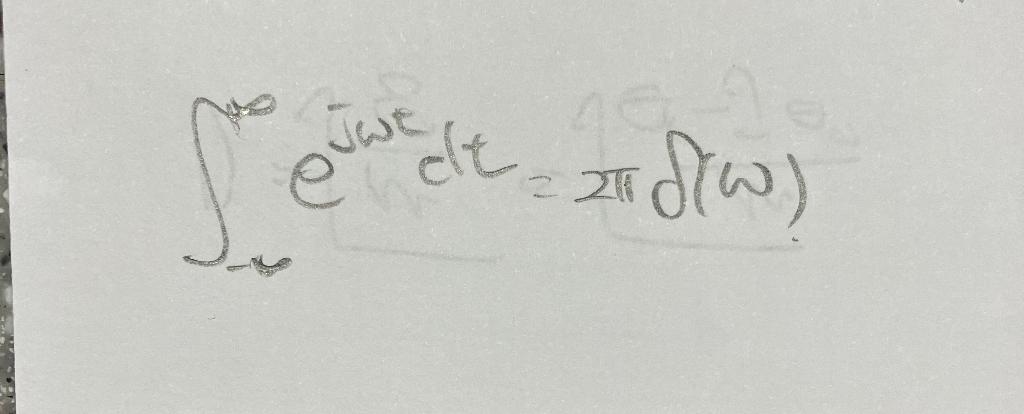 ∫_{-∞}^{∞} e^{jωt} dt = 2π δ(ω)